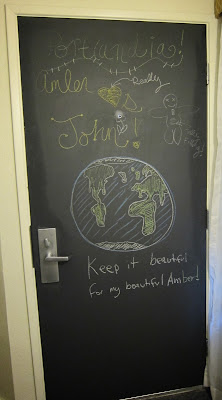 Amber
Really
John!
Keep it beautiful
for my beautiful Amber!